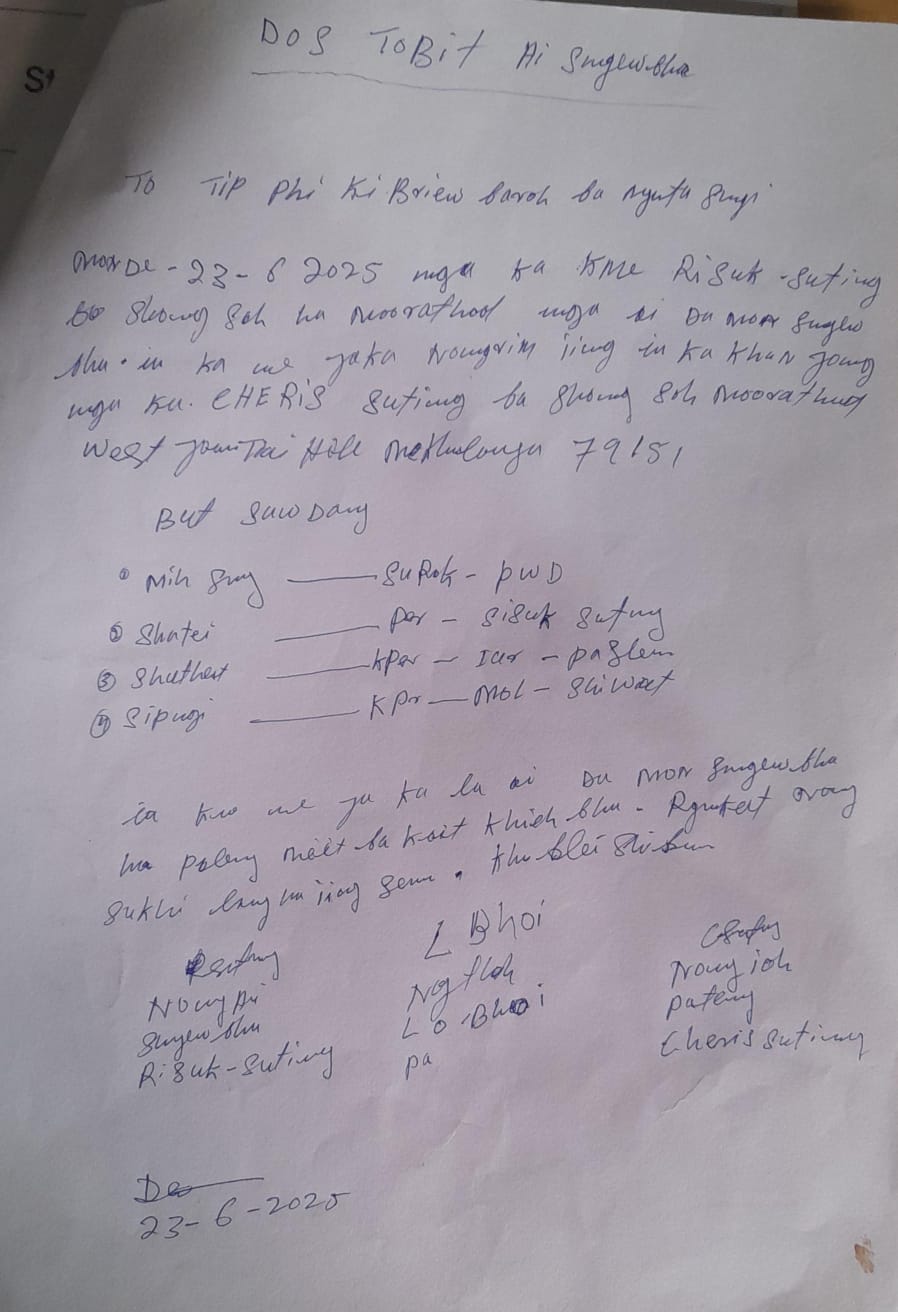 St
DOS TOBit Ai Sngewbha
To Tip Phi Ki Briew baroh ba nguta Sngi
mon De - 23 - 6 2025 nga ka kme Risuk - Suting
ba Shong Soh ha moorathod nga ai Da mon Sngew
bha. in ka me jaka Nongrim jing in Ka Khun jong
nga Ka. CHERIS Suting ba Shong Soh moorathud
West Jaintia Hill 79151
But Saw Dang
① Mih Sng — SuRok - PWD
② Shatei — Par - Sisuk Suting
③ Shathet — kPar - Iar - paslem
④ Sipngi — KPr — Mol - Shiwat
ia kw me ja ka la ai Da mon Sngewbha
ha paleng meit ba koit khieh bha. Rgukeat
Sukhi lang ha jing Sem. Khublei Shibun
RSuting L Bhoi CSuting
Nong Ai Ngtloh Nong ioh
Sngewbha Lo Bhoi pateng
Risuk - Suting pa Cheris Suting
De
23 - 6 - 2025